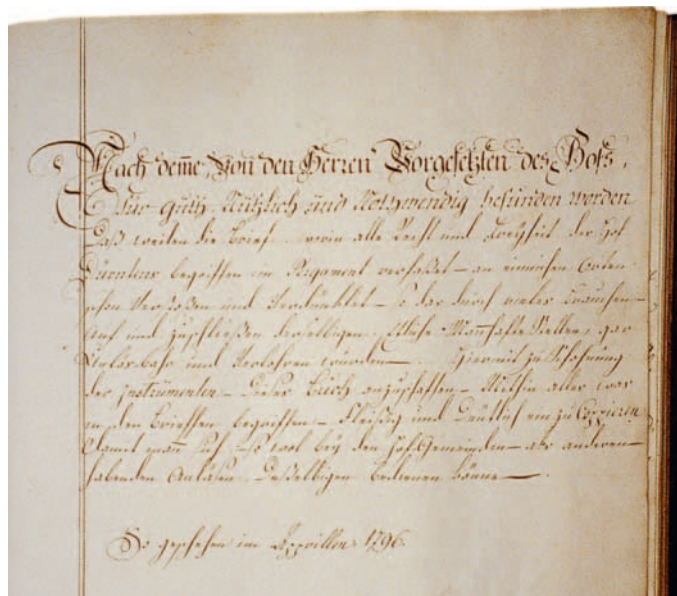 Nach deme, Von den Herren Vorgesetzten des Hofs,
Für guth, Nützlich und Nothwendig befunden worden
Daß weilen die Brief, worin alle Recht und Freyheit der Hof
Dürnten begriffen im Pergament verfasset an einichen Orten
schon Verstoßen und Verdunklet – so dar durch vieles brauchen
Auf und zuschließen derselbigen, Etliche Mannhafte Stellen, gar
Unlesbahr und Verlohren wurden – Hiermit zu Schohnung
der Instrumenten – Dieser Buch anzuschaffen – Mithin alles was
in den Brieffen begriffen – Fleißig und Deutlich ein zu Coppieren
Damit man sich so wol bey den Hof Gemeinden – als anderen
habenden Anläsen, Deßelbigen bedienen könne –
So geschehen im Apprillen 1796.